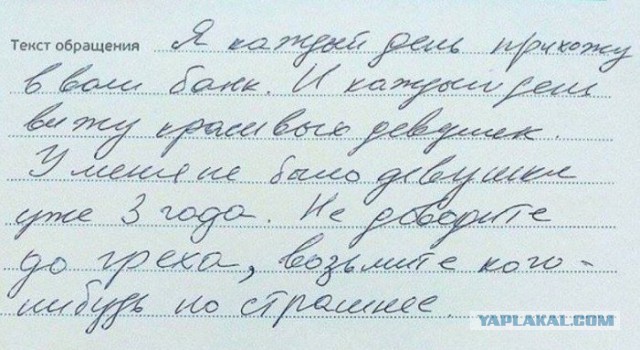 Текст обращения Я каждый день прихожу
в ваш банк. И каждый день
вижу красивых девушек.
У меня не было девушки
уже 3 года. Не доводите
до греха, возьмите кого-
нибудь по страшнее.
YAPLAKAL.COM